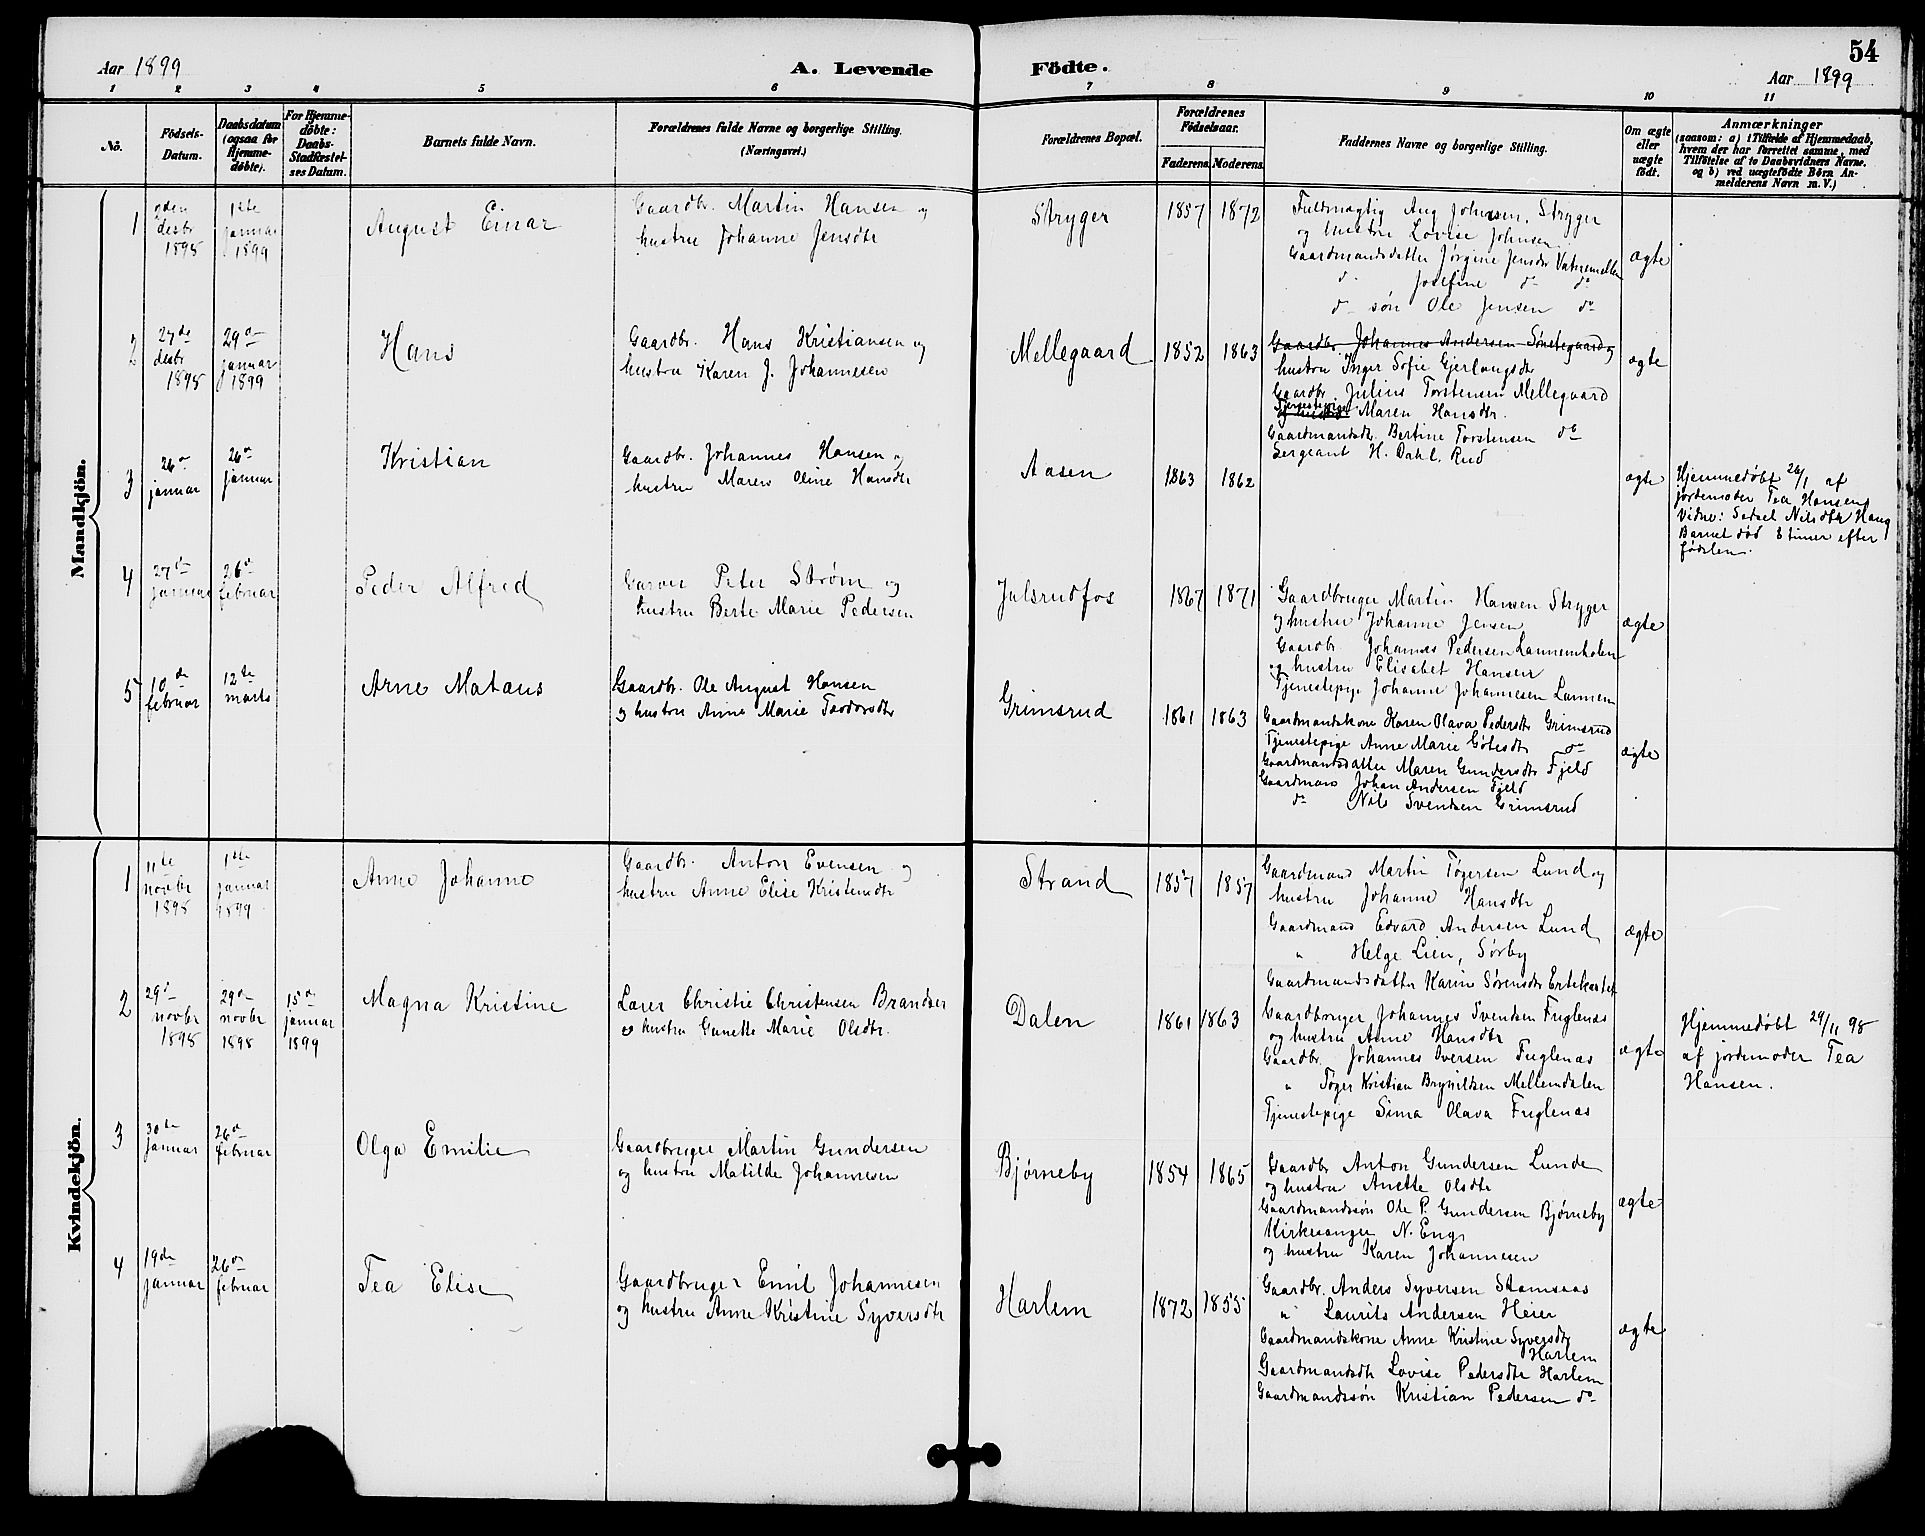 54
Aar 1899
A. Levende Födte.
Aar 1899
1 2 3 4 5 6 7 8 9 10 11
No.
Födsels-Datum.
Daabsdatum (ogsaa for Hjemme-döbte).
For Hjemme-döbte: Daabs-Stadfæstelses Datum.
Barnets fulde Navn.
Forældrenes fulde Navne og borgerlige Stilling.
(Næringsvei.)
Forældrenes Bopæl.
Forældrenes Födselsaar.
Faderens. Moderens.
Faddernes Navne og borgerlige Stilling.
Om ægte eller uægte födt.
Anmærkninger
(saasom: a) i Tilfælde af Hjemmedaab, hvem der har forrettet samme, med Tilföielse af to Daabsvidners Navne. og b) ved uægtefödte Börn Anmelderens Navn m. V.)
Mandkjön.
1
desbr 1898
1ste januar 1899
August Einar
Gaardbr. Martin Hansen og
hustru Johanne Jensdtr
Stryger
1857 1872
Fuldmægtig Aug Johnsen, Stryger
og hustru Lovise Johnsen
Gaardmandsdatter Jørgine Jensdtr
d- Josefine d- do
d- søn Ole Jensen do
ægte
2
27de desbr 1898
29de januar 1899
Hans
Gaardbr. Hans Kristiansen og
hustru Karen J. Johannesen
Mellegaard
1852 1863
Gaardbr. Johannes Andersen
hustru Inger Sofie Gjerlaugsdtr
Gaardbr Julius Torstensen Mellegaard
Tjenestepige Maren Hansdtr.
Gaardmandsdtr. Bertine Torstensen do
Sergeant H. Dahl, Rud
ægte
3
26de januar
26de januar
Kristian
Gaardbr. Johannes Hansen og
hustru Maren Oline Hansdtr
Aasen
1863 1862
ægte
Hjemmedøbt 26/1 af
jordemoder Tea Hansen
Vidne: Nilsdtr Haug
Barnet død 8 timer efter
fødslen.
4
27de januar
26de februar
Peder Alfred
Garver Peter Strøm og
hustru Berte Marie Pedersen
Julsrudfos
1867 1871
Gaardbruger Martin Hansen Stryger
og hustru Johanne Jensen
Gaardbr. Johannes Pedersen
og hustru Elisabet Hansen
Tjenestepige Johanne Johannesen Lannem
ægte
5
10de februar
12te marts
Arne Mataus
Gaardbr. Ole August Hansen
og hustru Anne Marie Teodorsdtr
Grimsrud
1861 1863
Gaardmandskone Karen Olava Pedersdtr Grimsrud
Tjenestepige Anne Marie do
Gaardmandsdatter Maren Gundersdtr Fjeld
Gaardmand Johan Andersen Fjeld
do Nils Svendsen Grimsrud
ægte
Kvindekjön.
1
11te novbr 1898
1ste januar 1899
Anne Johanne
Gaardbr. Anton Evensen og
hustru Anne Elise Kristensdtr
Strand
1857 1857
Gaardmand Martin Tøgersen Lund og
hustru Johanne Hansdtr
Gaardmand Edvard Andersen Lund
" Helge Lien, Sørby
Gaardmandsdatter Karin Sørensdtr
ægte
2
29de novbr 1898
29de novbr 1898
15de januar 1899
Magna Kristine
Lærer Christie Christensen Brandser
og hustru Gunette Marie Olsdtr.
Dalen
1861 1863
Gaardbruger Johannes Svendsen Fuglenæs
og hustru Anne Hansdtr
Gaardbr. Johannes Iversen Fuglenæs
" Tøger Kristian Brynildsen Mellemdalen
Tjenestepige Sima Olava Fuglenæs
ægte
Hjemmedøbt 29/11 98
af jordemoder Tea
Hansen.
3
30te januar
26de februar
Olga Emilie
Gaardbruger Martin Gundersen
og hustru Matilde Johannesen
Bjørneby
1854 1865
Gaardbr Anton Gundersen Lunde
og hustru Anette Olsdtr
Gaardmandssøn Ole P. Gundersen Bjørneby
Kirkesanger N. Eng.
og hustru Karen Johannesen
ægte
4
19de januar
26de februar
Tea Elise
Gaardbruger Emil Johannesen
og hustru Anne Kristine Syversdtr
Harlem
1872 1855
Gaardbr. Anders Syversen Stamsaas
" Laurits Andersen Heier
Gaardmandskone Anne Kristine Syversdtr
Harlem
Gaardmandsdtr Lovise Pedersdtr Harlem
Gaardmandssøn Kristian Pedersen do
ægte